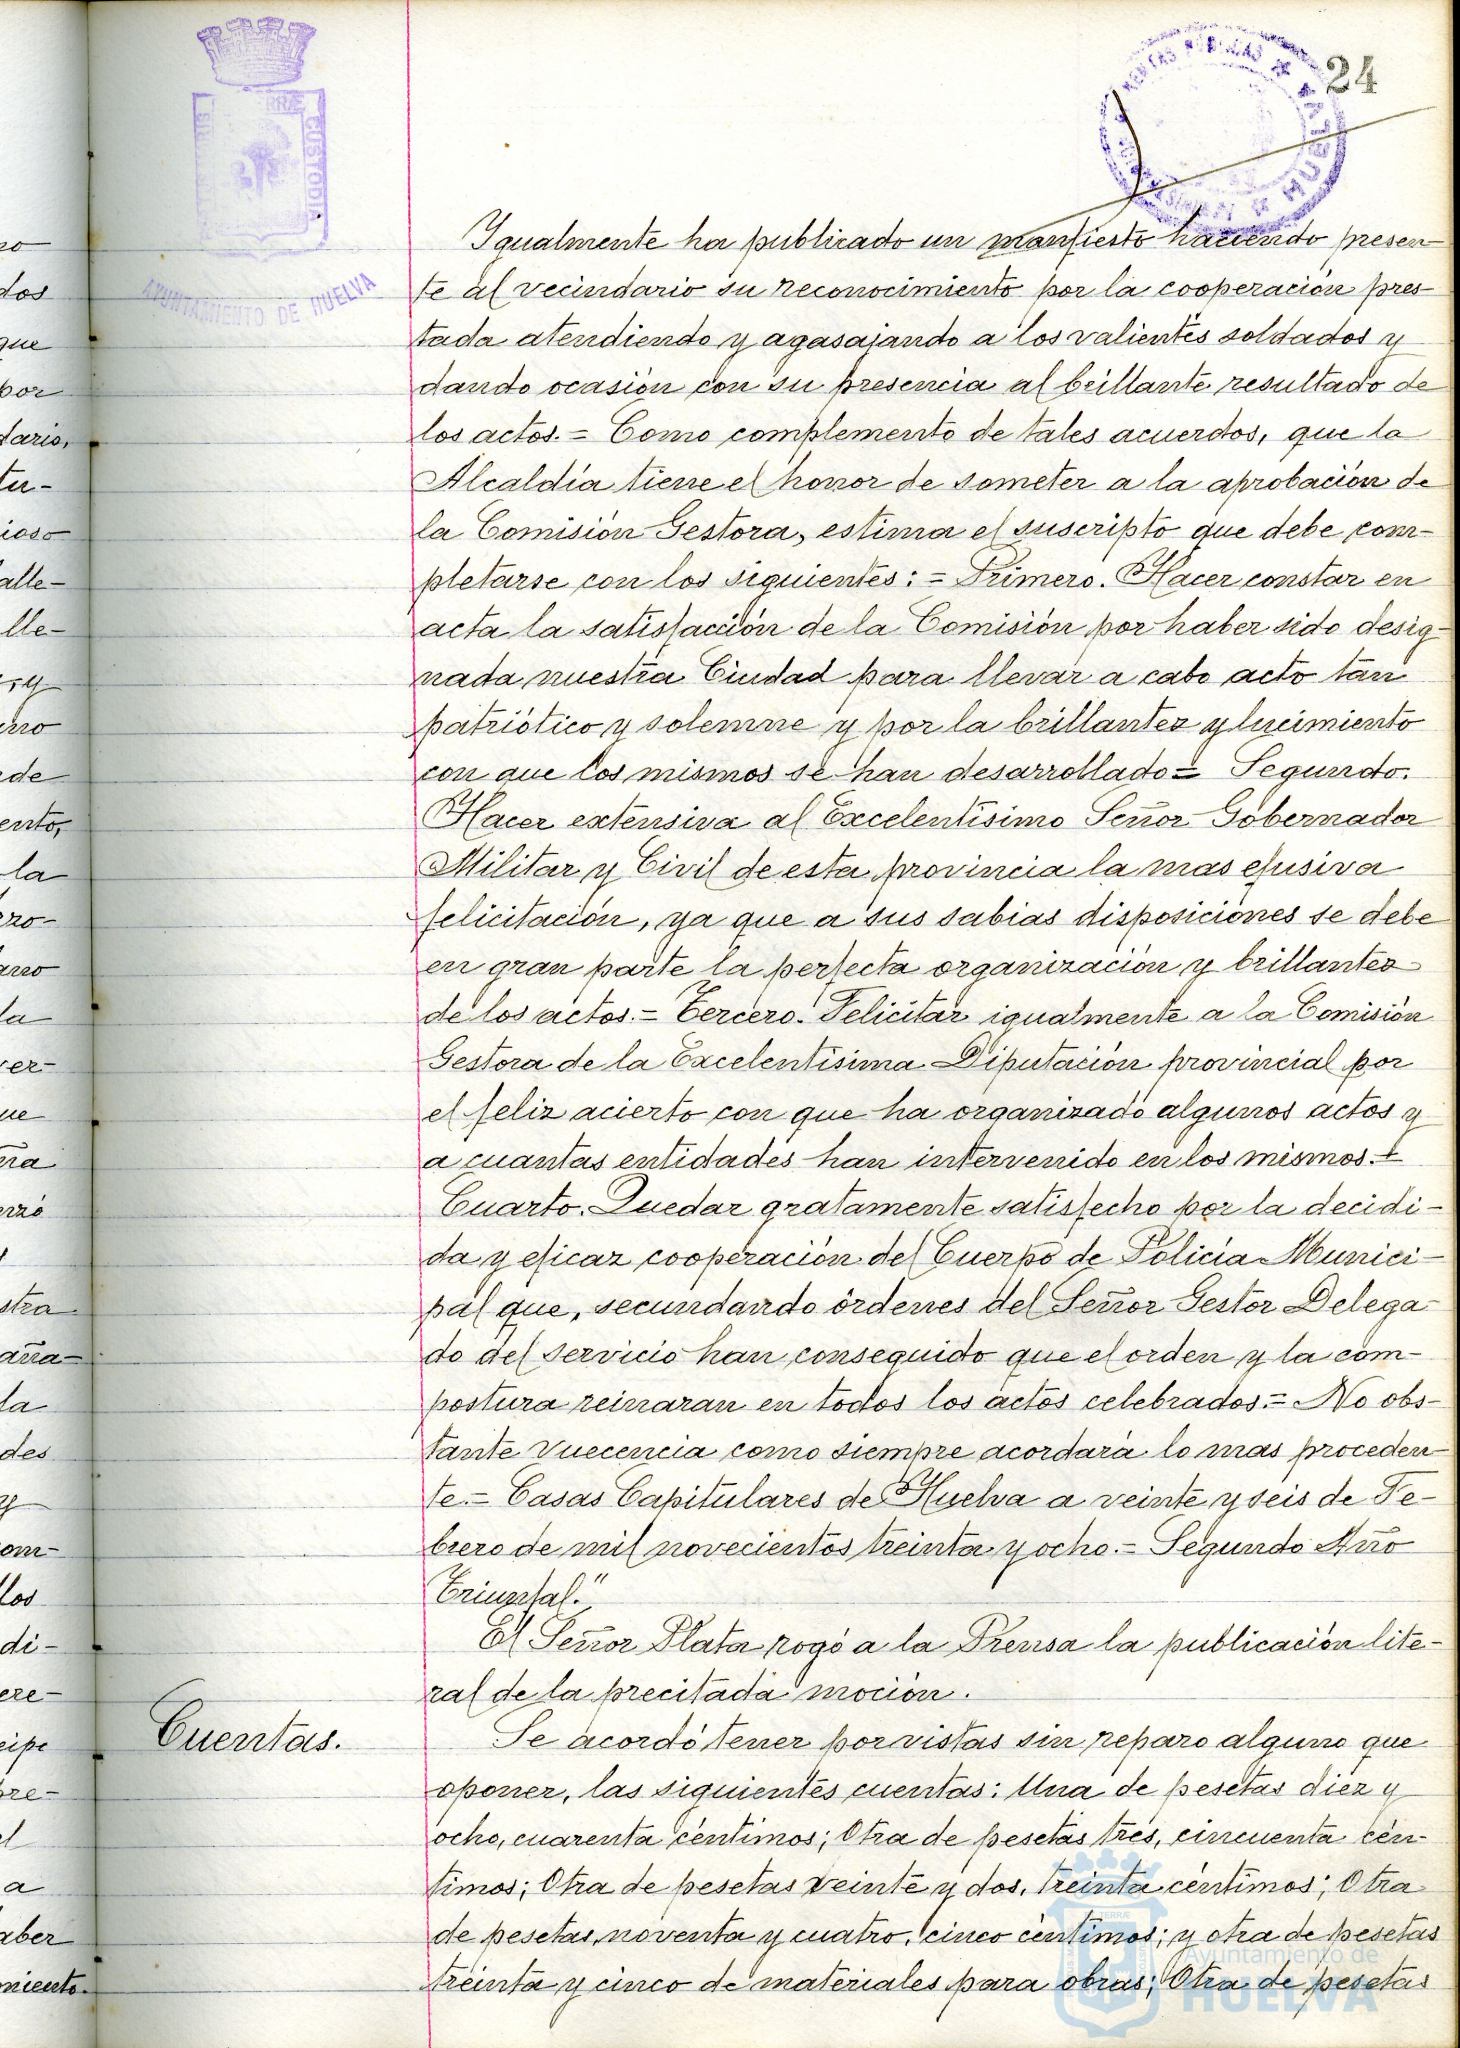 24
AYUNTAMIENTO DE HUELVA
Igualmente ha publicado un manfiesto haciendo presen-
te al vecindario su reconocimiento por la cooperación pres-
tada atendiendo y agasajando a los valientes soldados y
dando ocasión con su presencia al brillante resultado de
los actos.= Como complemento de tales acuerdos, que la
Alcaldía tiene el honor de someter a la aprobación de
la Comisión Gestora, estima el suscripto que debe com-
pletarse con los siguientes:= Primero. Hacer constar en
acta la satisfacción de la Comisión por haber sido desig-
nada nuestra Ciudad para llevar a cabo acto tan
patriótico y solemne y por la brillantez y lucimiento
con que los mismos se han desarrollado= Segundo.
Hacer extensiva al Excelentísimo Señor Gobernador
Militar y Civil de esta provincia la mas efusiva
felicitación, ya que a sus sabias disposiciones se debe
en gran parte la perfecta organización y brillantez
de los actos.= Tercero. Felicitar igualmente a la Comisión
Gestora de la Excelentísima Diputación provincial por
el feliz acierto con que ha organizado algunos actos y
a cuantas entidades han intervenido en los mismos.=
Cuarto. Quedar gratamente satisfecho por la decidi-
da y eficaz cooperación del Cuerpo de Policía Munici-
pal que, secundando órdenes del Señor Gestor Delega-
do del servicio han conseguido que el orden y la com-
postura reinaran en todos los actos celebrados.= No obs-
tante Vuecencia como siempre acordará lo mas proceden-
te.= Casas Capitulares de Huelva a veinte y seis de Fe-
brero de mil novecientos treinta y ocho.= Segundo Año
Triunfal."
El Señor Plata rogó a la Prensa la publicación lite-
ral de la precitada moción.
Cuentas.
Se acordó tener por vistas sin reparo alguno que
oponer, las siguientes cuentas: Una de pesetas diez y
ocho, cuarenta céntimos; Otra de pesetas tres, cincuenta cén-
timos; Otra de pesetas veinte y dos, treinta céntimos; Otra
de pesetas, noventa y cuatro, cinco céntimos; y otra de pesetas
treinta y cinco de materiales para obras; Otra de pesetas
Ayuntamiento de
HUELVA